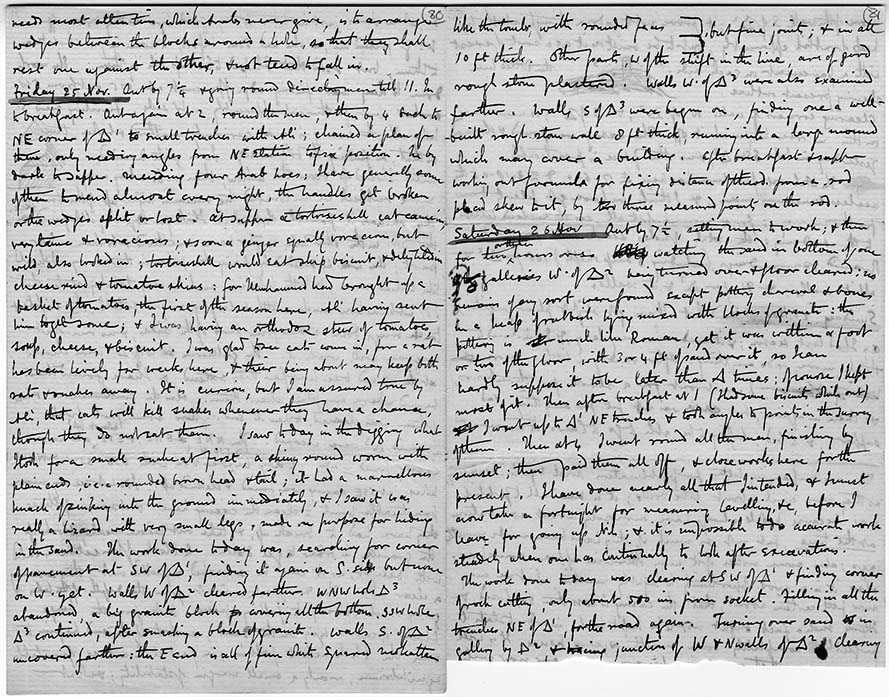 80
needs most attention, which Arabs never give, is to arrange
wedges between the blocks around a hole, so that they shall
rest one against the other, & not tend to fall in.
Friday 25 Nov. Out by 7½ & going round directing men till 11. In
to breakfast. Out again at 2, round the men, & then by 4 back to
NE corner of Δ1 to small trenches with Ali; chained a plan of
them, only needing angles from NE station to fix position. In by
dark to supper, mending four Arab hoes; I have generally some
of them to mend almost every night, the handles get broken
or the wedges split or lost. At supper a tortoiseshell cat came in,
very tame & voracious; & soon a ginger equally voracious, but
wild, also looked in; tortoiseshell would eat ship biscuit, & delighted in
cheese rind & tomatoe skins: for Muhammed had brought up a
basket of tomatoes, the first of the season here, Ali having sent
him to get some; & I was having an orthodox stew of tomatoes,
soup, cheese, & biscuit. I was glad to see cats come in, for a rat
has been lively for weeks here, & their being about may keep both
rats & snakes away. It is curious, but I am assured true by
Ali, that cats will kill snakes whenever they have a chance,
though they do not eat them. I saw today in the digging what
I took for a small snake at first, a shiny round worm with
plain ends, i.e. a rounded brown head & tail; it had a marvellous
knack of sinking into the ground immediately, & I saw it was
really a lizard with very small legs, made on purpose for hiding
in the sand. The work done today was, searching for corner
of pavement at SW of Δ1, finding it again on S. side but none
on W. yet. Walls W of Δ2 cleared farther. WNW hole Δ3
abandoned, a big granite block covering all the bottom. SSW hole
Δ3 continued, after smashing a block of granite. Walls S. of Δ2
uncovered farther: the E end is all of fine white squared
81
like the tombs, with rounded faces, but fine joints; & in all
10 ft thick. Other parts, W of the shift in the line, are of good
rough stone plastered. Walls W. of Δ3 were also examined
farther. Walls S of Δ3 were begun on, finding one a well-
built rough stone wall 8 ft thick, running into a large mound
which may cover a building. After breakfast & supper
working out formula for fixing distance of theod. from a rod
placed skew to it, by three measured points on the rod.
Saturday 26 Nov Out by 7½, setting men to work; & then
for two hours or so watching the sand in bottom of one
of galleries W. of Δ2 being turned over & floor cleared; no
remains of any sort were found except pottery charcoal & bones
in a heap of rubbish lying mixed with blocks of granite: the
pottery is much like Roman, yet it was within a foot
or two of the floor, with 3 or 4 ft of sand over it, so I can
hardly suppose it to be later than Δ times; of course I kept
most of it. Then after breakfast at 1 (I had some biscuits while out)
I went up to Δ1 NE trenches & took angles to points in the survey
of them. Then at 4 I went round all the men, finishing by
sunset; then paid them all off, & close works here for the
present. I have done nearly all that I intended, & I must
now take a fortnight for measuring levelling, &c, before I
leave for going up Nile; & it is impossible to do accurate work
steadily when one has continually to look after excavations.
The work done today was clearing at SW of Δ1 & finding corner
of rock cutting, only about 500 ins. from socket. Filling in all the
trenches NE of Δ1, for the road again. Turning over sand in
gallery by Δ2 & junction of W & N walls of Δ2 clearing